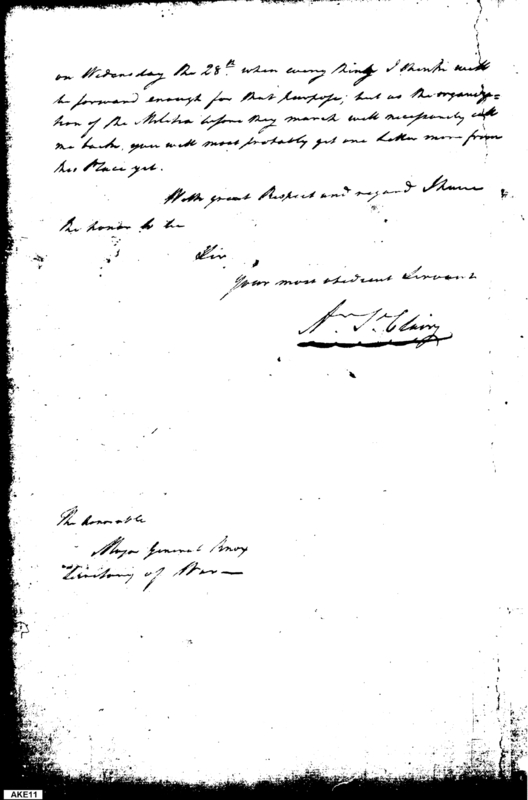 on Wednesday the 28th. when every thing I think will
be forward enough for that purpose; but as the organiza=
tion of the Militia before they march will necessarily call
me back, you will most probably get one letter more from
this Place yet.
With great Respect and regard I have
the honor to be
Sir
Your most obedient Servant
Ar. St. Clair
The honorable
Major General Knox
Secretary of War
AKE11